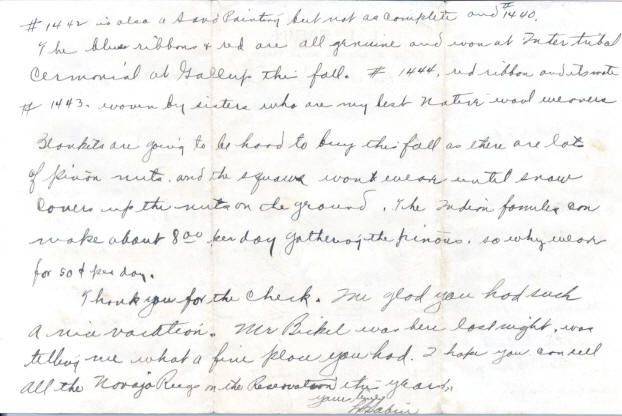 # 1442 is also a Sand Painting but not as complete and #1440.
The blue ribbons & red are all genuine and won at Inter tribal
Cermonial at Gallup this fall. # 1444, red ribbon and its mate
# 1443. woven by sisters who are my best Native wool weavers
Blankets are going to be hard to buy this fall as there are lots
of piñon nuts. and the squaws wont weave until snow
covers up the nuts on the ground. The Indian families can
make about 8.00 per day gathering the pinons. so why weave
for 50¢ per day.
Thank you for the check. Im glad you had such
a nice vacation. Mr Bickel was here last night, was
telling me what a fine place you had. I hope you can sell
all the Navajo Rugs on the Reservation this year.
yours truly